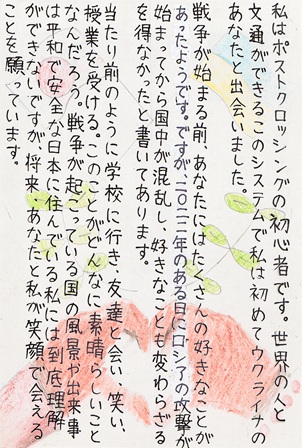 私はポストクロッシングの初心者です。世界の人と
文通ができるこのシステムで私は初めてウクライナの
あなたと出会いました。
戦争が始まる前、あなたにはたくさんの好きなことが
あったようです。ですが、二〇二二年のある日にロシアの攻撃が
始まってから国中が混乱し、好きなことも変わらざる
を得なかったと書いてあります。
当たり前のように学校に行き、友達と会い、笑い、
授業を受ける。このことがどんなに素晴らしいこと
なんだろう。戦争が起こっている国の風景や出来事
は平和で安全な日本に住んでいる私には到底理解
ができないですが、将来、あなたと私が笑顔で会える
ことを願っています。